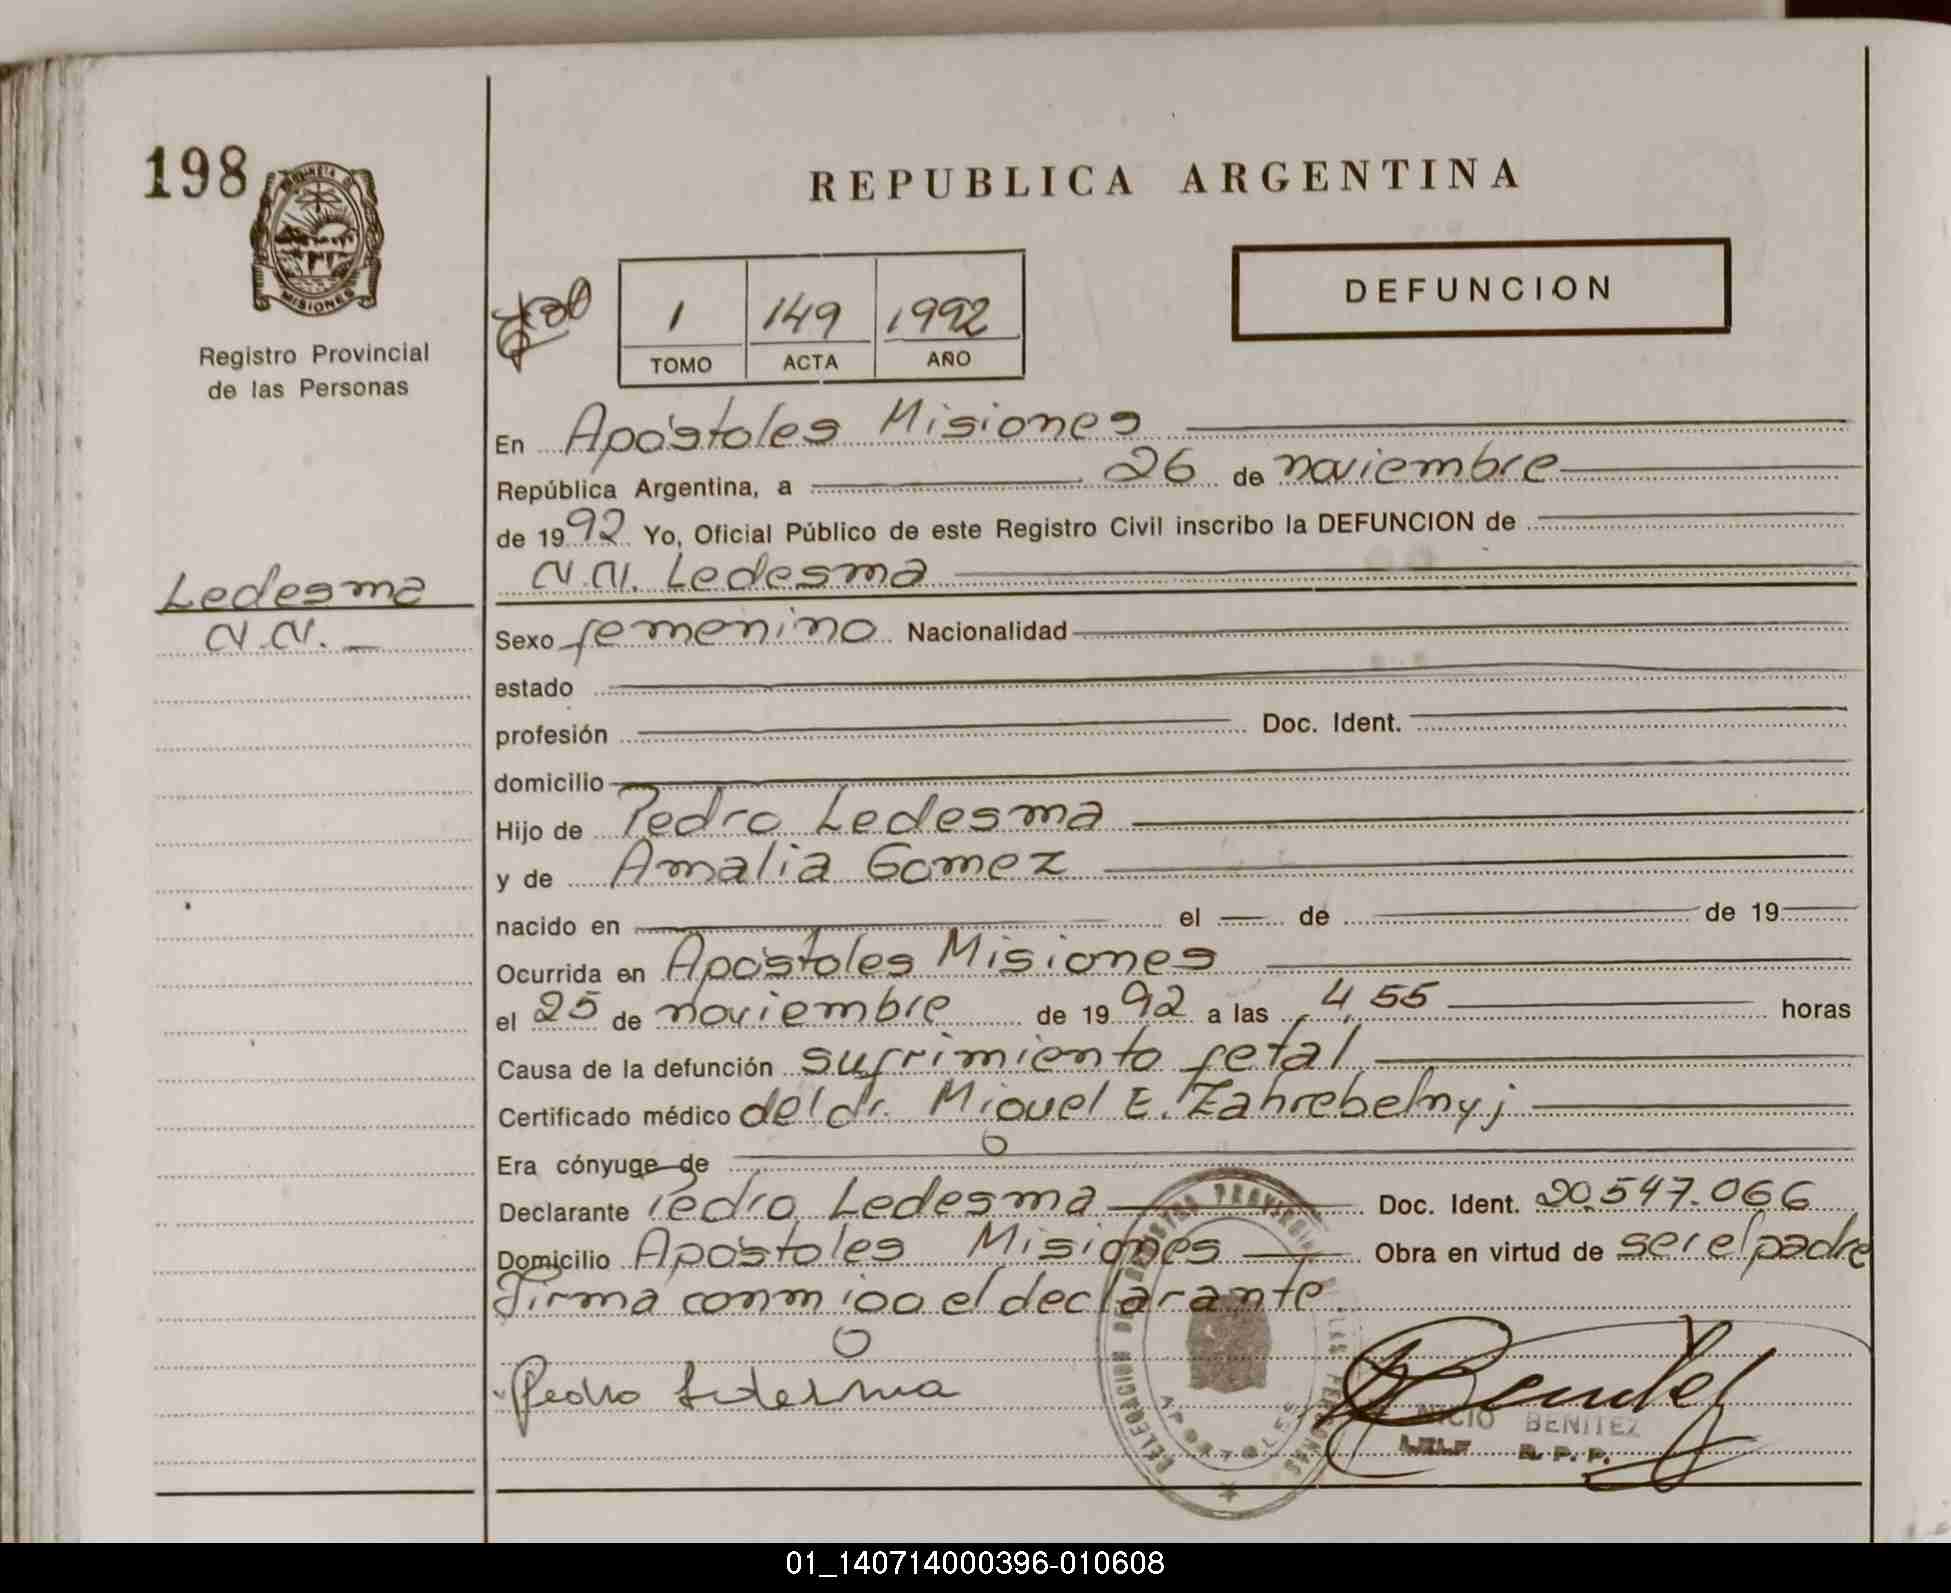 198
PROVINCIA DE
MISIONES
Registro Provincial
de las Personas
REPUBLICA ARGENTINA
1 149 1992
TOMO ACTA AÑO
DEFUNCION
En Apóstoles Misiones
República Argentina, a 26 de noviembre
de 1992 Yo, Oficial Público de este Registro Civil inscribo la DEFUNCION de
N.N. Ledesma
Ledesma
N.N.
Sexo femenino Nacionalidad
estado
profesión Doc. Ident.
domicilio
Hijo de Pedro Ledesma
y de Amalia Gomez
nacido en el de de 19
Ocurrida en Apóstoles Misiones
el 25 de noviembre de 1992 a las 4,55 horas
Causa de la defunción sufrimiento fetal
Certificado médico del dr. Miguel E. Zahrebelnyj
Era cónyuge de
Declarante Pedro Ledesma Doc. Ident. 20.547.066
Domicilio Apóstoles Misiones Obra en virtud de ser el padre
Firma conmigo el declarante.
Pedro Ledesma
DELEGACION DEL REGISTRO PROVINCIAL DE LAS PERSONAS
APOSTOLES
BENITEZ
R. P. P.
01_140714000396-010608